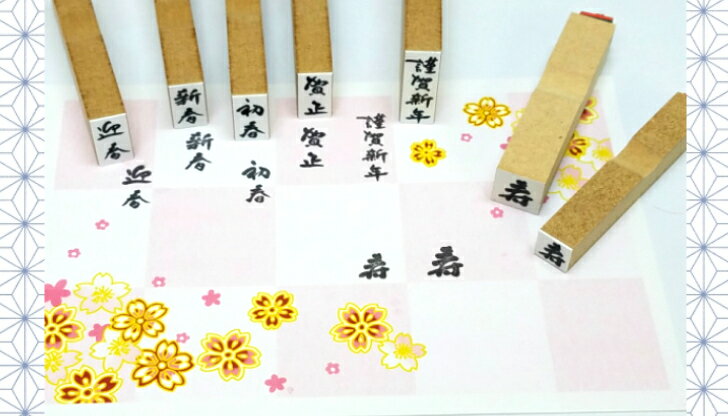 迎春
新春
初春
賀正
謹賀新年
寿
寿
迎春
新春
初春
賀正
謹賀新年
寿
寿